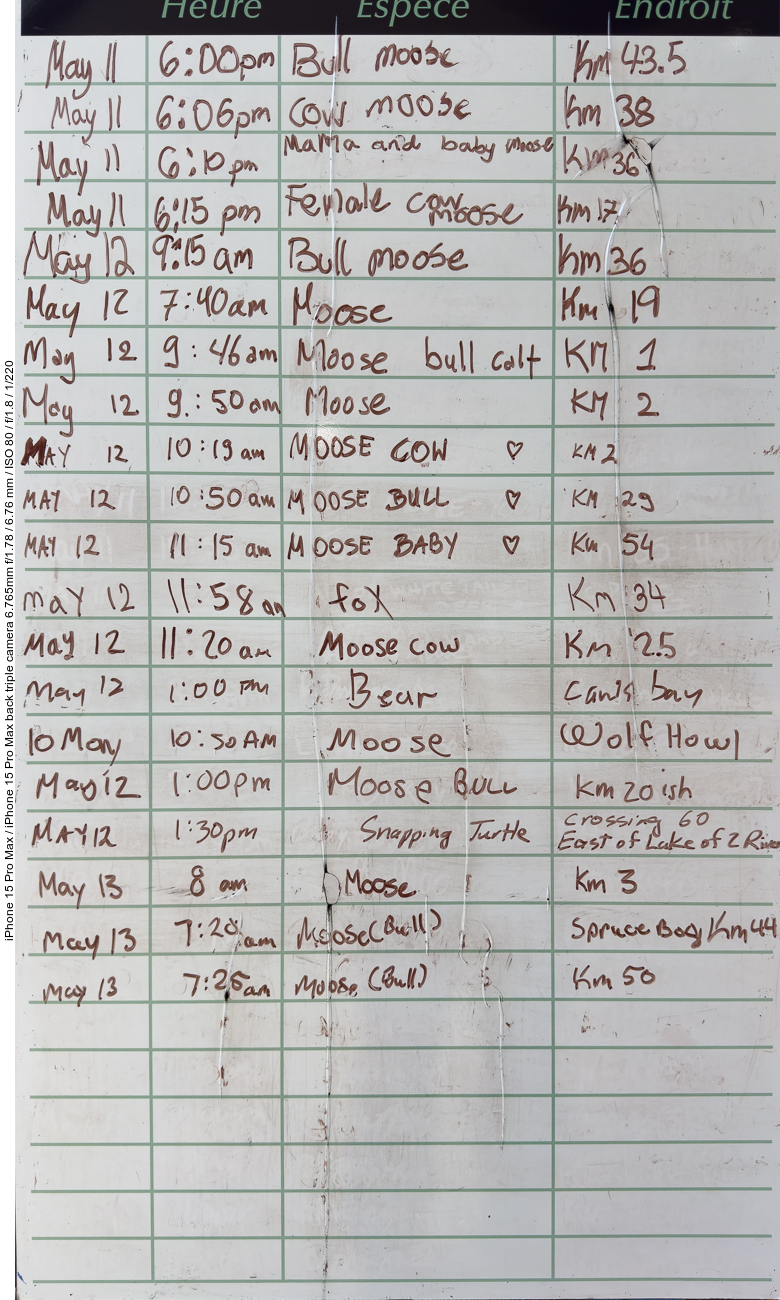 Heure Espèce Endroit
May 11 6:00pm Bull moose Km 43.5
May 11 6:06pm Cow moose Km 38
May 11 6:10 pm Mama and baby moose Km 36
May 11 6:15 pm Female cow moose Km 17
May 12 9:15 am Bull moose Km 36
May 12 7:40am Moose Km 19
May 12 9:46am Moose bull calf KM 1
May 12 9:50am Moose KM 2
MAY 12 10:19 am MOOSE COW ♡ KM 2
MAY 12 10:50am MOOSE BULL ♡ KM 29
MAY 12 11:15 am MOOSE BABY ♡ Km 54
may 12 11:58 am fox Km 34
May 12 11:20 am Moose cow Km 2.5
May 12 1:00 PM Bear Canis bay
10 May 10:50 AM Moose Wolf Howl
May 12 1:00pm Moose BULL Km 20 ish
MAY 12 1:30pm Snapping Turtle Crossing 60
East of Lake of 2 Rivers
May 13 8 am Moose Km 3
May 13 7:20 am Moose (Bull) Spruce Bog Km 44
May 13 7:25am Moose (Bull) Km 50
iPhone 15 Pro Max / iPhone 15 Pro Max back triple camera 6.765mm f/1.78 / 6.76 mm / ISO 80 / f/1.8 / 1/220